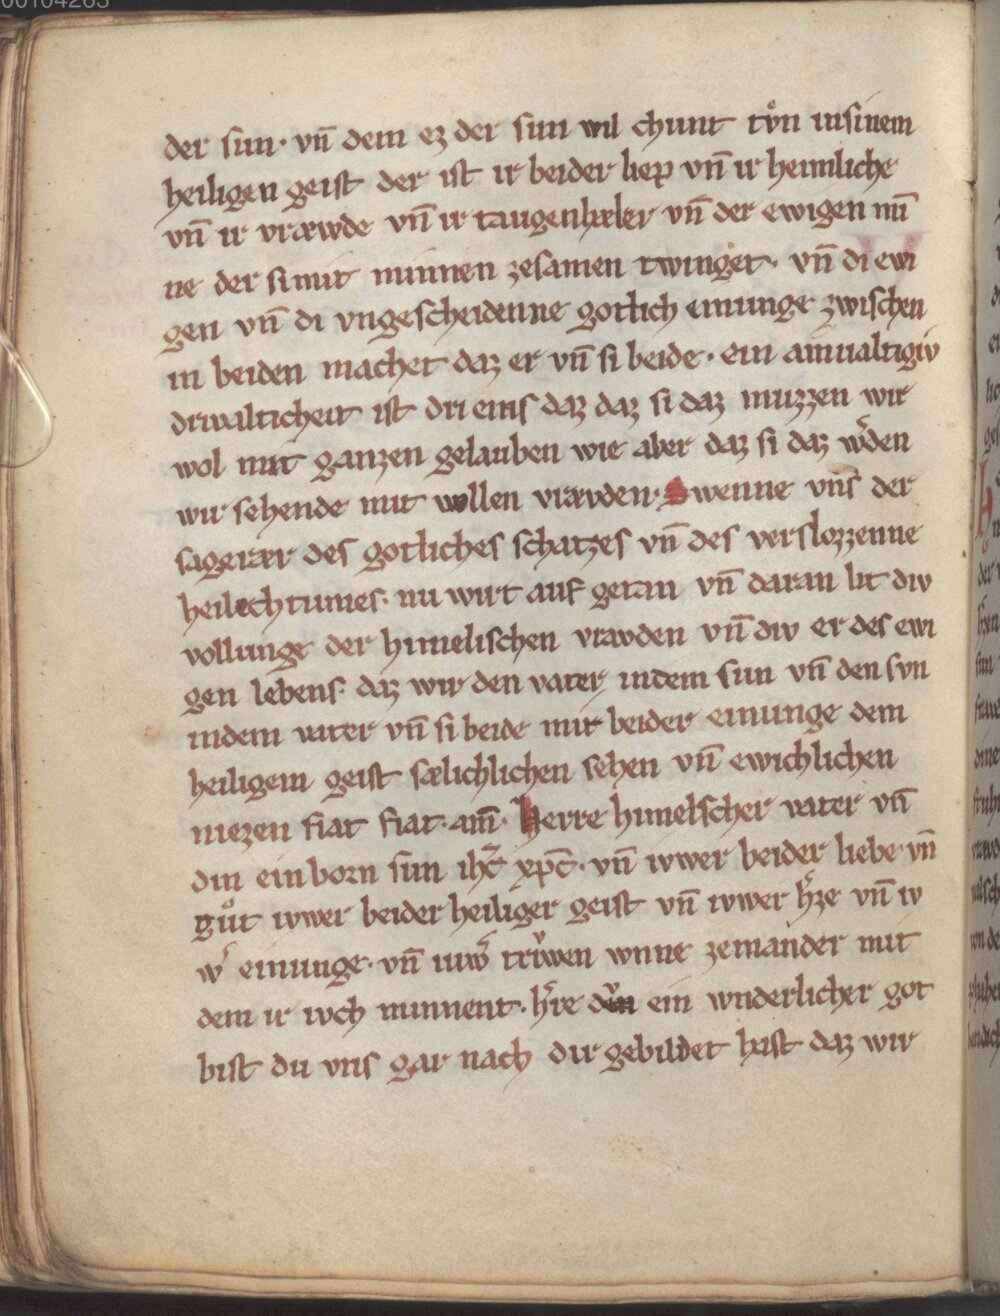 00104263
der sun· vn̄ dem ez der sun wil chunt tv̊n insinem
heiligen geist der ist ir beider liep vn̄ ir heimliche
vn̄ ir vræwde vn̄ ir taugenhæler vn̄ der ewigen mī
ne der si mit minnen zesamen twinget· vn̄ di ewi
gen vn̄ di vngescheidenne gotlich einunge zwischen
in beiden machet daz er vn̄ si beide· ein ainualtigiv
drivalticheit ist dri eins daz daz si daz muzzen wir
wol mit ganzen gelauben wie aber daz si daz w̓den
wir sehende mit vollen vrævden· Swenne vns der
sagerær des gotliches schatzes vn̄ des verslozzenne
heilechtumes· nu wirt auf getan vn̄ daran lit div
vollunge der himelischen vravden vn̄ div er des ewi
gen lebens· daz wir den vater indem sun vn̄ den svn
indem vater vn̄ si beide mit beider einunge dem
heiligem geist sælichlichen sehen vn̄ ewichlichen
niezen fiat fiat· am̄· Herre himelscher vater vn̄
din einborn sun ihc̄ xpc̄· vn̄ ivwer beider liebe vn̄
gůt ivwer beider heiliger geist vn̄ ivwer h̓ze vn̄ iv
w̓ einunge· vn̄ iuw̓ triwen wnne zemander mit
dem ir ivch minnent· h̓re ein wnderlicher got
bist du vns gar nach dir gebildet hast daz wir